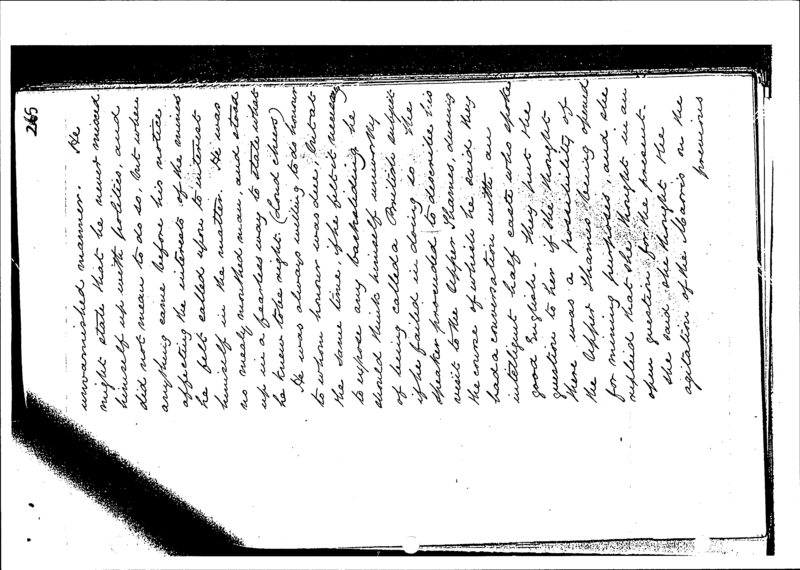 265
unvarnished manner. He
might state that he never mixed
himself up with politics, and
did not mean to do so, but when
anything came before his notice
affecting the interests of the mines
he felt called upon to interest
himself in the matter. He was
no mealy mouthed man, and stood
up in a fearless way to state what
he knew to be right (Loud cheers)
He was always willing to do honor
to whom honour was due, but at
the same time, if he felt it necessary
to expose any backsliding he
should think himself unworthy
of being called a British subject
if he failed in doing so. The
speaker proceeded to describe his
visit to the Upper Thames, during
the course of which he said they
had a conversation with an
intelligent half caste who spoke
good English. They put the
question to her if she thought
there was a possibility of
the Upper Thames being opened
for mining purposes and she
replied that she thought it an
open question for the present.
She said she thought the
agitation of the Maoris on the
previous